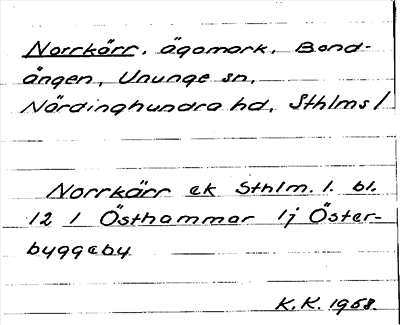 Norrkärr, ägomark, Bond-
ängen, Ununge sn,
Närdinghundra hd, Sthlms l
Norrkärr ek Sthlm. l. bl.
12 1 Östhammar 1j Öster-
byggeby
K.K. 1958.